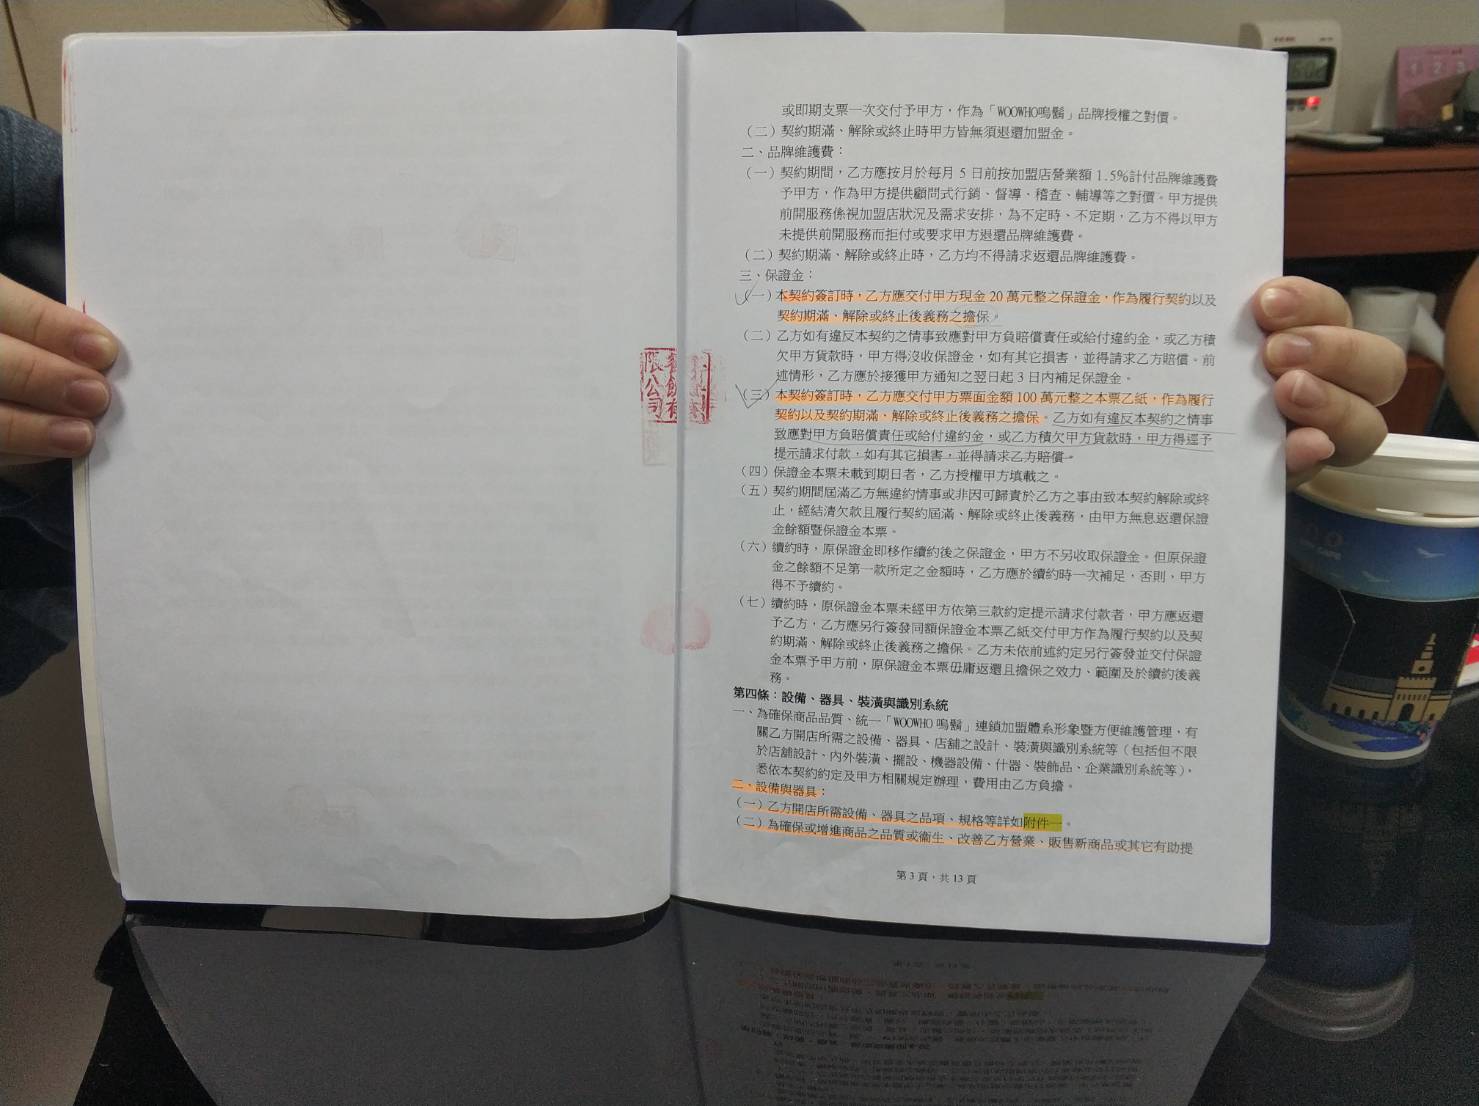 或即期支票一次交付予甲方，作為「WOOWHO嗚鬍」品牌授權之對價。
（二）契約期滿、解除或終止時甲方皆無須退還加盟金。
二、品牌維護費：
（一）契約期間，乙方應按月於每月 5 日前按加盟店營業額 1.5%計付品牌維護費
予甲方，作為甲方提供顧問式行銷、督導、稽查、輔導等之對價。甲方提供
前開服務係視加盟店狀況及需求安排，為不定時、不定期，乙方不得以甲方
未提供前開服務而拒付或要求甲方退還品牌維護費。
（二）契約期滿、解除或終止時，乙方均不得請求返還品牌維護費。
三、保證金：
（一）本契約簽訂時，乙方應交付甲方現金 20 萬元整之保證金，作為履行契約以及
契約期滿、解除或終止後義務之擔保。
（二）乙方如有違反本契約之情事致應對甲方負賠償責任或給付違約金，或乙方積
欠甲方貨款時，甲方得沒收保證金，如有其它損害，並得請求乙方賠償。前
述情形，乙方應於接獲甲方通知之翌日起 3 日內補足保證金。
（三）本契約簽訂時，乙方應交付甲方票面金額 100 萬元整之本票乙紙，作為履行
契約以及契約期滿、解除或終止後義務之擔保。乙方如有違反本契約之情事
致應對甲方負賠償責任或給付違約金，或乙方積欠甲方貨款時，甲方得逕予
提示請求付款，如有其它損害，並得請求乙方賠償。
（四）保證金本票未載到期日者，乙方授權甲方填載之。
（五）契約期間屆滿乙方無違約情事或非因可歸責於乙方之事由致本契約解除或終
止，經結清欠款且履行契約屆滿、解除或終止後義務，由甲方無息返還保證
金餘額暨保證金本票。
（六）續約時，原保證金即移作續約後之保證金，甲方不另收取保證金。但原保證
金之餘額不足第一款所定之金額時，乙方應於續約時一次補足，否則，甲方
得不予續約。
（七）續約時，原保證金本票未經甲方依第三款約定提示請求付款者，甲方應返還
予乙方，乙方應另行簽發同額保證金本票乙紙交付甲方作為履行契約以及契
約期滿、解除或終止後義務之擔保。乙方未依前述約定另行簽發並交付保證
金本票予甲方前，原保證金本票毋庸返還且擔保之效力、範圍及於續約後義
務。
第四條：設備、器具、裝潢與識別系統
一、為確保商品品質、統一「WOOWHO 嗚鬍」連鎖加盟體系形象暨方便維護管理，有
關乙方開店所需之設備、器具、店舖之設計、裝潢與識別系統等（包括但不限
於店舖設計、內外裝潢、擺設、機器設備、什器、裝飾品、企業識別系統等），
悉依本契約約定及甲方相關規定辦理，費用由乙方負擔。
二、設備與器具：
（一）乙方開店所需設備、器具之品項、規格等詳如附件一。
（二）為確保或增進商品之品質或衛生、改善乙方營業、販售新商品或其它有助提
第 3 頁，共 13 頁
餐飲有
限公司
1 2 3